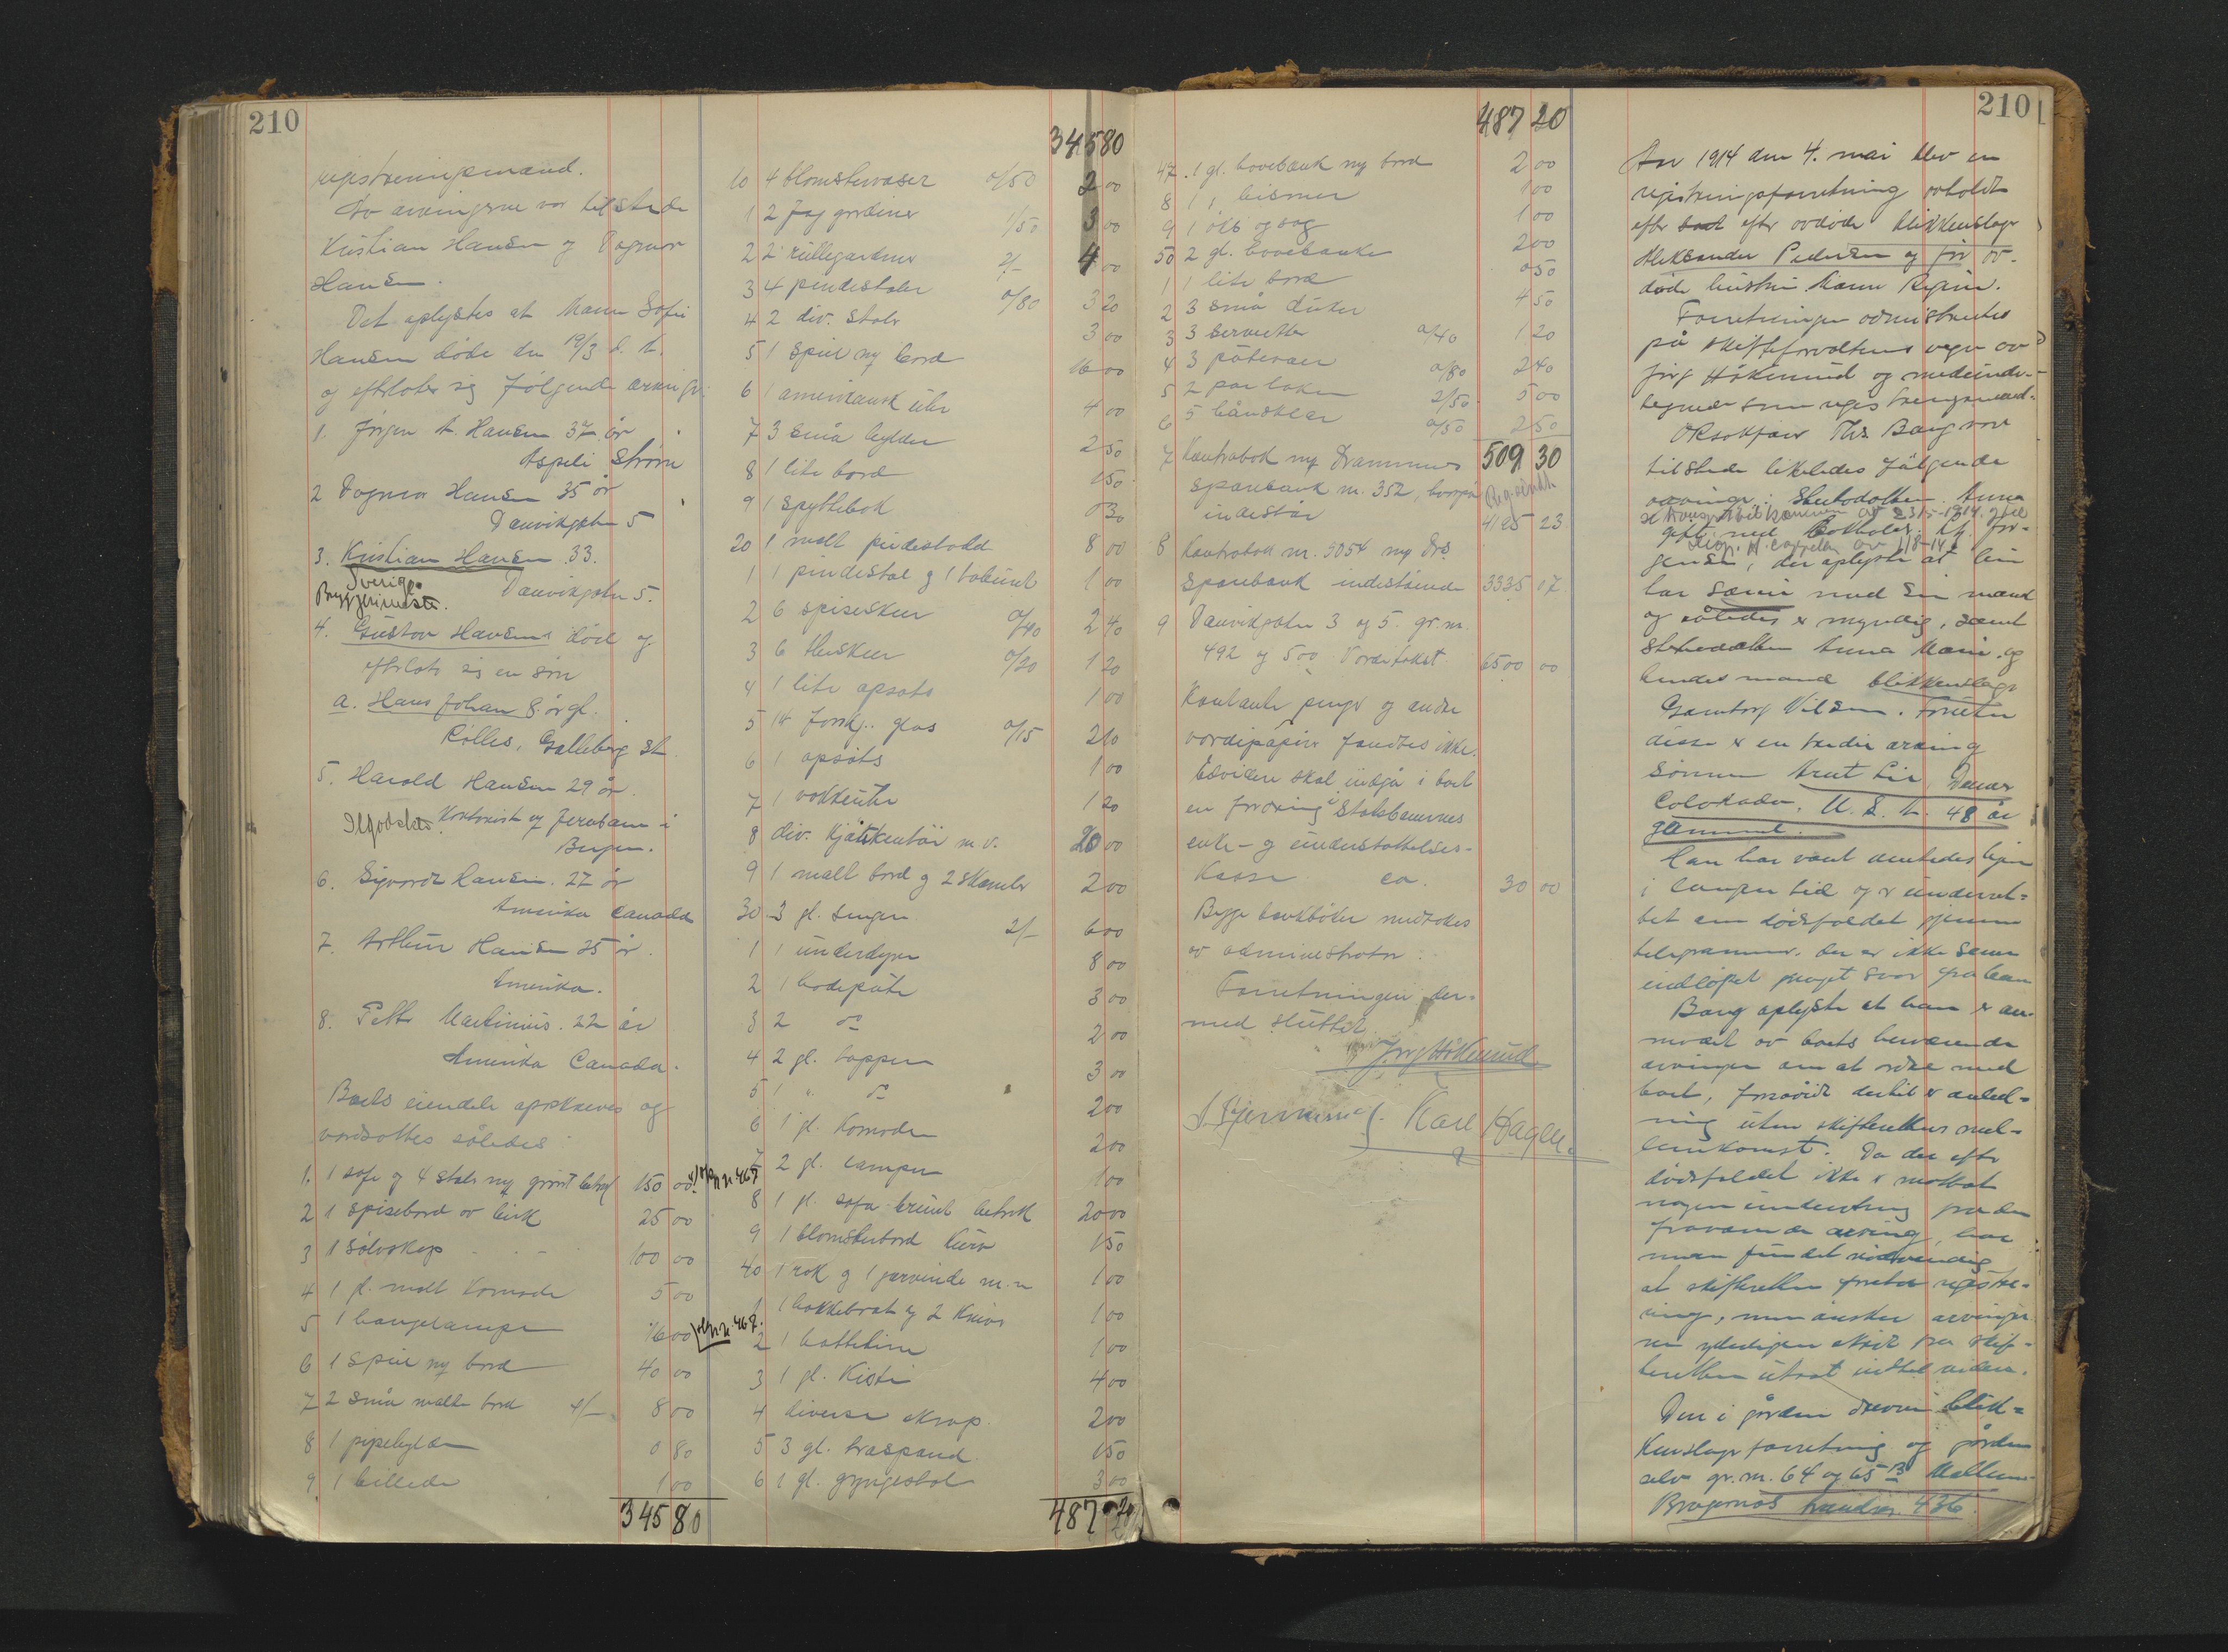 210
registreringsmænd.
Av arvingerne var tilstede
Kristian Hansen og Dagmar
Hansen.
Det oplystes at Maren Sofie
Hansen døde den 19/3 d. å.
og efterlot sig følgende arvinger:
1. Jørgen A. Hansen 37 år
Aspeli Strøm
2 Dagmar Hansen 35 år
Danvikgaten 5
3. Kristian Hansen 33.
Sverige.
Danvikgaten 5.
Bryggerimester.
4. Gustav Hansen død og
efterlot sig en søn
a. Hans Johan 8 år gl.
Galleberg St.
5. Harald Hansen 29 år.
Kontorist og Jernbanen i
Bergen.
6. Sigvardt Hansen. 27 år
Amerika Canada
7. Arthur Hansen 25 år.
Amerika.
8. Peter Martinius. 22 år
Amerika Canada.
Boets eiendele opskreves og
værdsattes således:
1. 1 sofa og 4 stoler m/ grønt betræk 150 00
2 1 spisebord av birk 25 00
3 1 sølvskap 100 00
4 1 gl. malt komode 5 00
5 1 hængelampe 16 00
6 1 speil m/ bord 40 00
7 2 små malte bord 4/- 8 00
8 1 pipehylde 0 80
9 1 billede 1 00
345 80
345 80
10 4 blomstervaser 0/50 2 00
1 2 fag gardiner 1/50 3 00
2 2 rullegardiner 2/- 4 00
3 4 pindestoler 0/80 3 20
4 2 div. stoler 3 00
5 1 speil m/ bord 16 00
6 1 amerikansk uhr 4 00
7 3 små hylder 2 50
8 1 lite bord 1 50
9 1 spyttebak 0 30
20 1 malt pindestold 8 00
1 1 pindestol og 1 taburet 1 00
2 6 spiseskeer 0/40 2 40
3 6 theskeer 0/20 1 20
4 1 lite opsats 1 00
5 14 forskj. glas 0/15 2 10
6 1 opsats 1 00
7 1 vækkeuhr 1 20
8 div. kjøkkentøi m. v. 20 00
9 1 malt bord og 2 skamler 2 00
30 3 gl. senger 2/- 6 00
1 1 underdyne 8 00
2 1 hodepute 3 00
3 2 do 2 00
4 2 gl. tæpper 3 00
5 1 " do 2 00
6 1 gl. komode 2 00
7 2 gl. lamper 1 00
8 1 gl. sofa brunt betræk 20 00
9 1 blomsterbord kurv 1 50
40 1 rok og 1 garnvinde m. m 1 00
1 1 hakkebræt og 2 kniver 1 00
2 1 1 00
3 1 gl. kiste 4 00
4 diverse skrap 2 00
5 3 gl. træspand 1 50
6 1 gl. gyngestol 3 00
487 20
487 20
47. 1 gl. høvelbænk m/ bord 2 00
8 1 " bismer 1 00
9 1 øks og sag 1 00
50 2 gl. høvelbænker 2 00
1 1 lite bord 0 50
2 3 små duker 4 50
3 3 servietter 0/40 1 20
4 3 putevaer 0/80 2 40
5 2 par laken 2/50 5 00
6 5 håndklær 0/50 2 50
509 30
7 Kontrabok m/ Drammens
Sparebank nr. 352, hvorpå
indestår 4195 23
8 Kontrabok nr. 5054 m/ Drs.
Sparebank indestående 3335 07
9 Danvikgaten 3 og 5. gr. nr.
492 og 500. Værditakst 6500 00
Kontante penger og andre
værdipapirer fandtes ikke.
Desuden skal indgå i boet
en fordring i Statsbanernes
enke- og understøttelses-
kasse ca. 30 00
Begge bankbøker medtokes
av administrator.
Forretningen der-
med sluttet.
Karl Hagen.
210
Aar 1914 den 4. mai blev en
registreringsforretning avholdt
efter avdøde blikkenslager
Aleksander Pedersen og før av-
døde hustru Maren
Forretningen administrertes
på skifteforvalterens vegne av
og medunder-
tegnede som registreringsmænd.
O.R.sakfører Ths. Bang var
tilstede likeledes følgende
arvinger: Stedodatter Anna
gift med
der oplyste at hun
har særeie med sin mand
og således er myndig, samt
steddatteren Anna Marie og
hendes mand blikkenslager
Nilsen. Foruten
disse er en tredie arving
sønnen Denver
Colorado. U. S. A. 48 år
gammel.
Han har vært derborte
i længere tid og er underret-
tet om dødsfaldet gjennem
telegrammer. Der er ikke senere
indløpet noget svar fra ham
Bang oplyste at han er an-
modet av boets nærværende
arvinger om at ordne med
boet, forsåvidt dertil er anled-
ning uten skifterettens mel-
lemkomst. Da der efter
dødsfaldet ikke er mottat
nogen underretning fra den
fraværende arving, har
man fundet nødvendig
at skifteretten foretar registre-
ring, men ønsker arvinger-
ne yderligere skridt fra skif-
teretten utsat indtil videre.
Den i gården drevne blik-
kenslagerforretning og gården
selv gr. nr. 64 og 65 B
Bragernes 436.